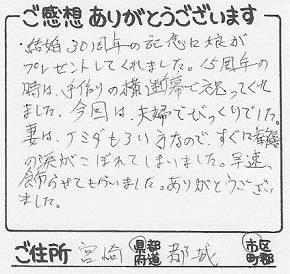 ご感想 ありがとうございます
・結婚30周年の記念に娘が
プレゼントしてくれました。15周年の
時は、手作りの横断幕で祝ってくれ
ました。今回は、夫婦でびっくりでした。
妻は、ナミダもろい方なので、すぐに感激
の涙がこぼれてしまいました。早速、
飾らせてもらいました。ありがとうござい
ました。
ご住所 宮崎 都道府県 都城 市区町郡